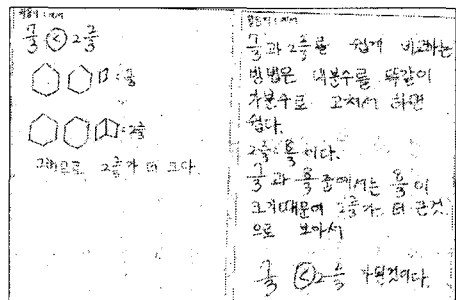 7/3 < 2 2/3
: 7/3
: 2 2/3
그러므로 2 2/3가 더 크다.
7/3과 2 2/3를 쉽게 비교하는
방법은 대분수를 똑같이
가분수로 고쳐서 하면
쉽다.
2 2/3 = 8/3 이다.
7/3 과 8/3 중에서는 8/3 이
크기때문에 2 2/3가 더 큰것
으로 보아서
7/3 < 2 2/3 가 된것이다.